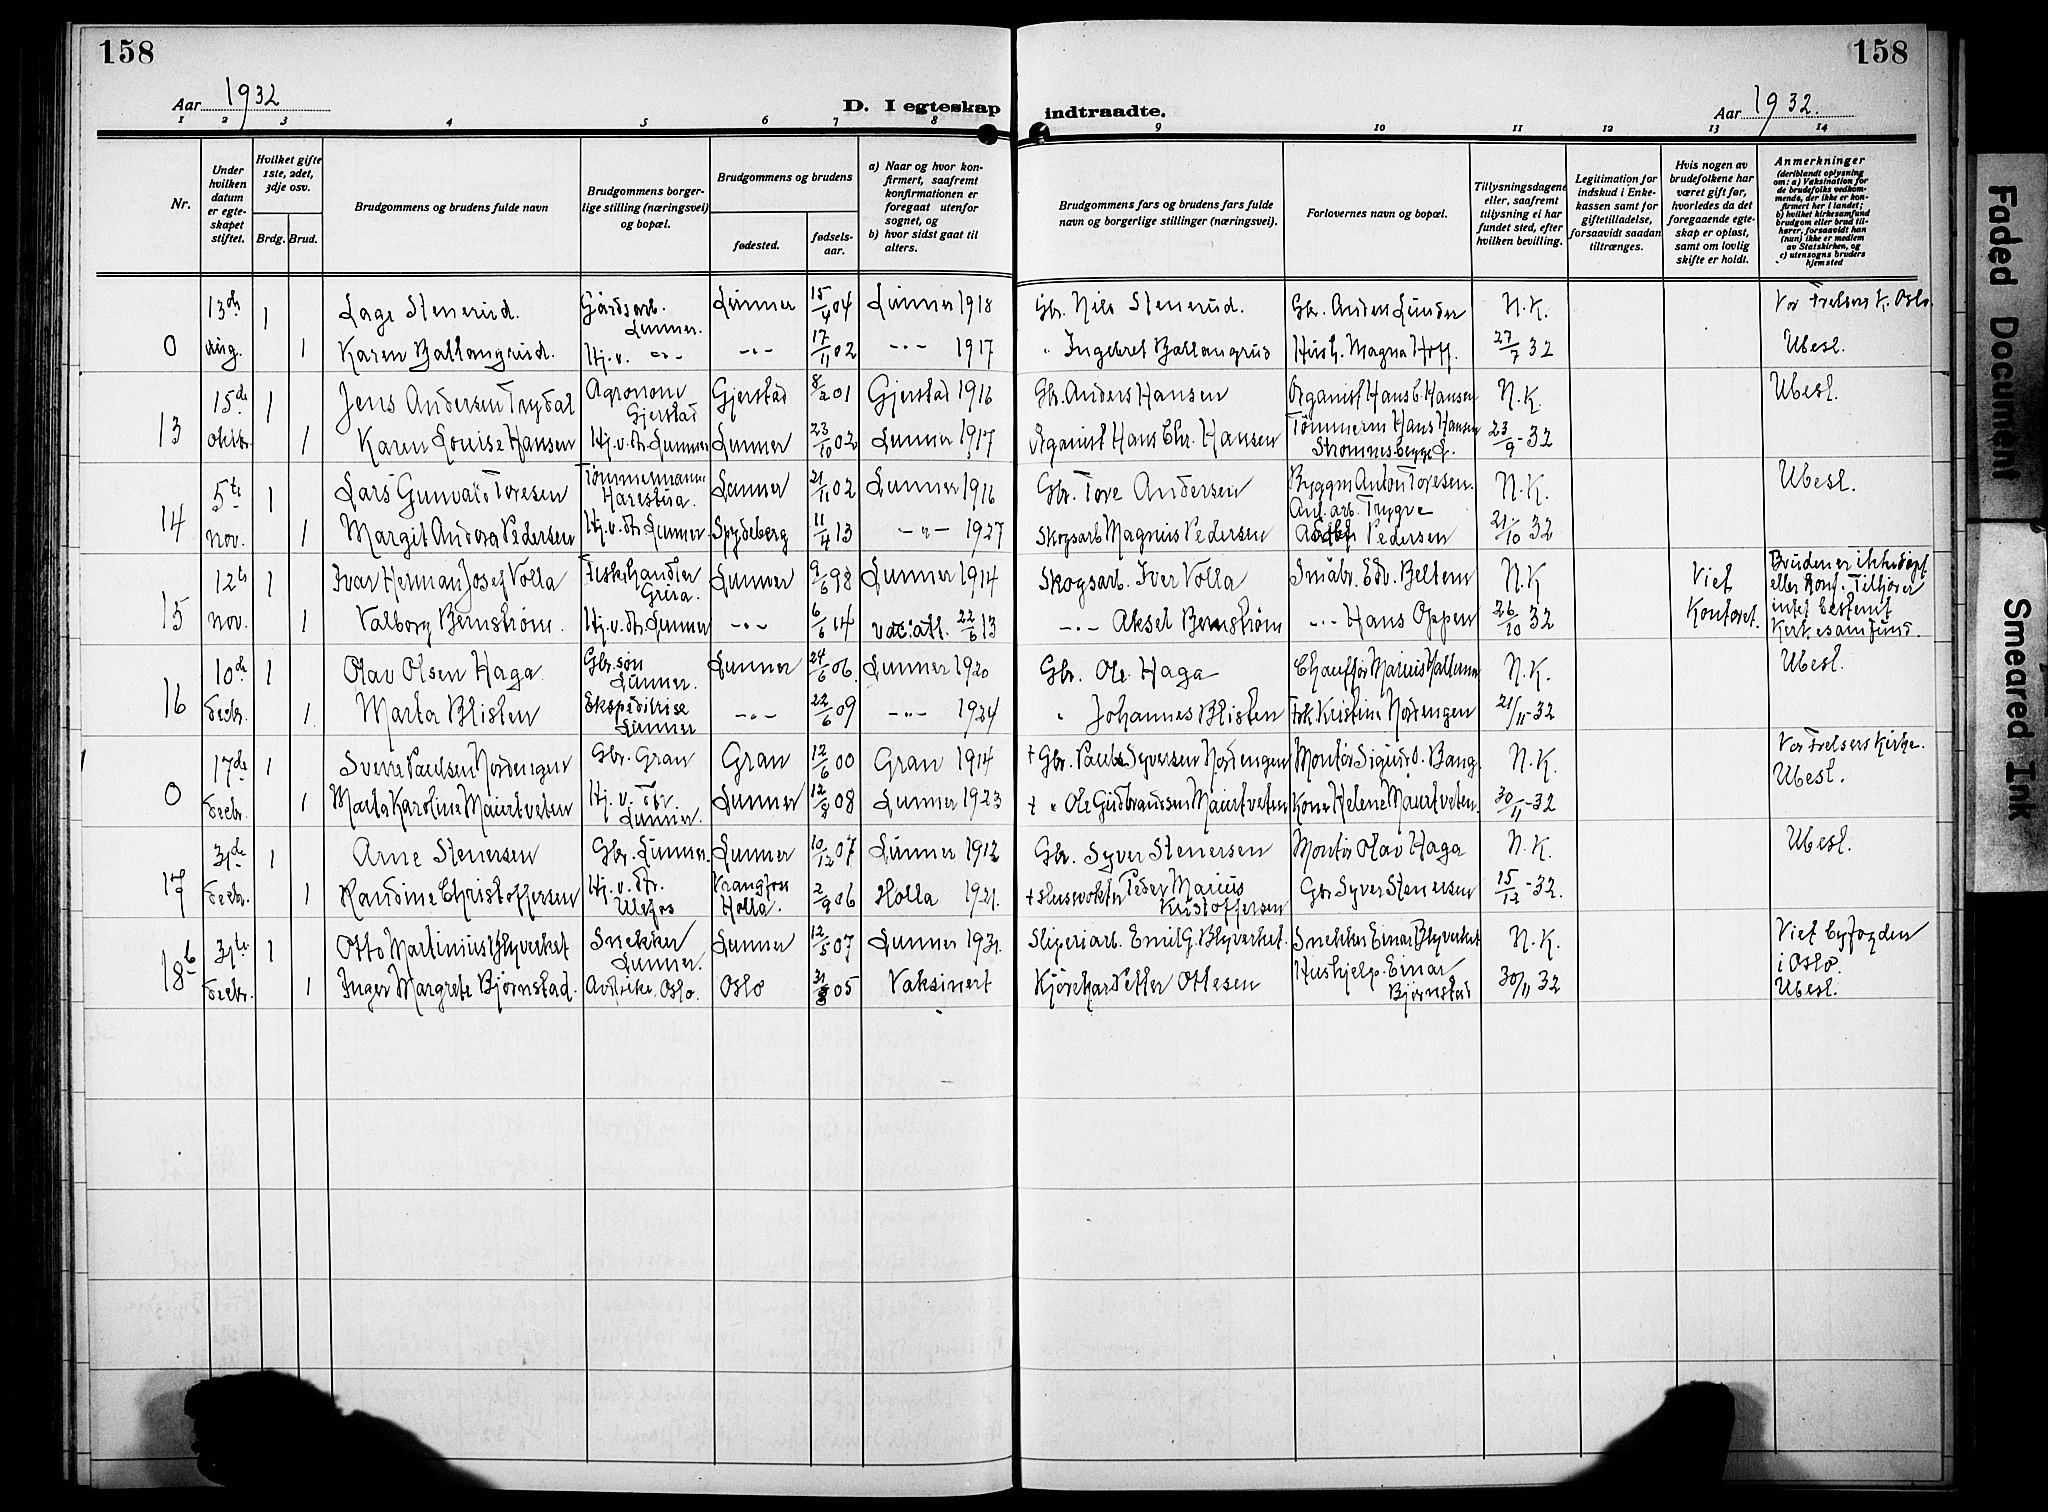 158
158
Aar 1932
D. I egteskap indtraadte.
Aar 1932.
1 2 3 4 5 6 7 8 9 10 11 12 13 14
Nr.
Under hvilken datum er egteskapet stiftet.
Hvilket gifte 1ste, 2det, 3dje osv.
Brdg. Brud.
Brudgommens og brudens fulde navn
Brudgommens borgerlige stilling (næringsvei) og bopæl.
Brudgommens og brudens
fødested.
fødselsaar.
a) Naar og hvor konfirmert, saafremt konfirmationen er foregaat utenfor sognet, og
b) hvor sidst gaat til alters.
Brudgommens fars og brudens fars fulde navn og borgerlige stillinger (næringsvei).
Forlovernes navn og bopæl.
Tillysningsdagene eller, saafremt tillysning ei har fundet sted, efter hvilken bevilling.
Legitimation for indskud i Enkekassen samt for giftetilladelse, forsaavidt saadan tiltrænges.
Hvis nogen av brudefolkene har været gift før, hvorledes da det foregaaende egteskap er opløst, samt om lovlig skifte er holdt.
Anmerkninger
(deriblandt oplysning om: a) Vaksination for de brudefolks vedkommende, der ikke er konfirmert her i landet; b) hvilket kirkesamfund brudgom eller brud tilhører, forsaavidt han (hun) ikke er medlem av Statskirken, og c) utensogns bruders hjemsted
0 13de Aug. 1 Lage Stenerud. Gårdsarb. Lunner. Lunner 15/4 04 Lunner 1918 Gbr. Nils Stenerud. Gbr. Anders Lunder N.K. Vor Frelsers K. Oslo.
1 Karen Ballangrud. Hj.v. -"- -"- 17/11 02 -"- 1917 " Ingebret Ballangrud Hush. Magna Hoff. 27/7 32 Ubesl.
13 15de Oktbr. 1 Jens Andersen Trydal Agronom Gjerstad Gjerstad 8/2 01 Gjerstad 1916 Gbr. Anders Hansen Organist Hans C. Hansen N.K. Ubesl.
1 Karen Louise Hansen Hj.v. str. Lunner Lunner 23/10 02 Lunner 1917 Organist Hans Chr. Hansen Tømmerm Hans Hansen 23/9-32
14 5te nov. 1 Lars Gunvald Toresen Tømmermann Harestua. Lunner 21/11 02 Lunner 1916 Gbr. Tore Andersen Byggm Anton Toresen. N.K. Ubesl.
1 Margit Andora Pedersen Hj.v. str. Lunner Spydeberg 11/4 13 -"- 1927 Skogsarb Magnus Pedersen Anl.arb. Trygve Pedersen 21/10 32
15 12te nov. 1 Ivar Herman Josef Volla Fiskehandler Grua. Lunner 9/6 98 Lunner 1914 Skogsarb. Iver Volla Småbr. Edv. Beltem N.K Viet Kontoret. Bruden er ikke døpt eller konf. Tilhører intet bestemt Kirkesamfund.
1 Valborg Bernstrøm. Hj.v. str. Lunner -"- 6/6 14 vac: att. 22/6 13 -"- Aksel Bernstrøm -"- Hans Oppen 26/10 32
16 10de Decbr. 1 Olav Olsen Haga Gbr. søn Lunner. Lunner 24/6 06. Lunner 1920 Gbr. Ole Haga Chauffør Marius Hallum N.K. Ubesl.
1. Marta Blisten Ekspeditrise Lunner -"- 22/6 09 -"- 1924 " Johannes Blisten Frk Kristine Nordengen 21/11-32
0 17de Decbr. 1 Sverre Paulsen Nordengen Gbr. Gran Gran 12/6 00 Gran 1914 + Gbr. Paul Syversen Nordengen Montør Sigurd O. Bang. N.K. Vor Frelsers Kirke. Ubesl.
1 Marta Karoline Maurtveten Hj.v. str. Lunner. Lunner 12/8 08 Lunner 1923 + " Ole Gudbrandsen Maurtveten Kone Helene Maurtveten. 30/11-32
17 31de Decbr. 1 Arne Stenersen Gbr. Lunner. Lunner 10/12 07 Lunner 1912 Gbr. Syver Stenersen Montør Olav Haga N.K. Ubesl.
1 Randine Christoffersen Hj.v. str. Ulefos Vrangfoss Holla. 2/9 06 Holla 1921. + Slusevokter Peder Marius Kristoffersen Gbr Syver Stenersen 15/12-32.
18b 31te Decbr. 1 Otto Martinius Blyverket Snekker Lunner. Lunner 12/5 07 Lunner 1931. Sliperiarb. Emil G. Blyverket. Snekker Einar Blyverket N.K. Viet byfogden i Oslo. Ubesl.
1 Inger Margrete Bjørnstad. Oslo. Oslo 31/8 05 Vaksinert Kjørekar Petter Ottesen Hushjelp. Einar Bjørnstad 30/11 32
Faded Document
Smeared Ink